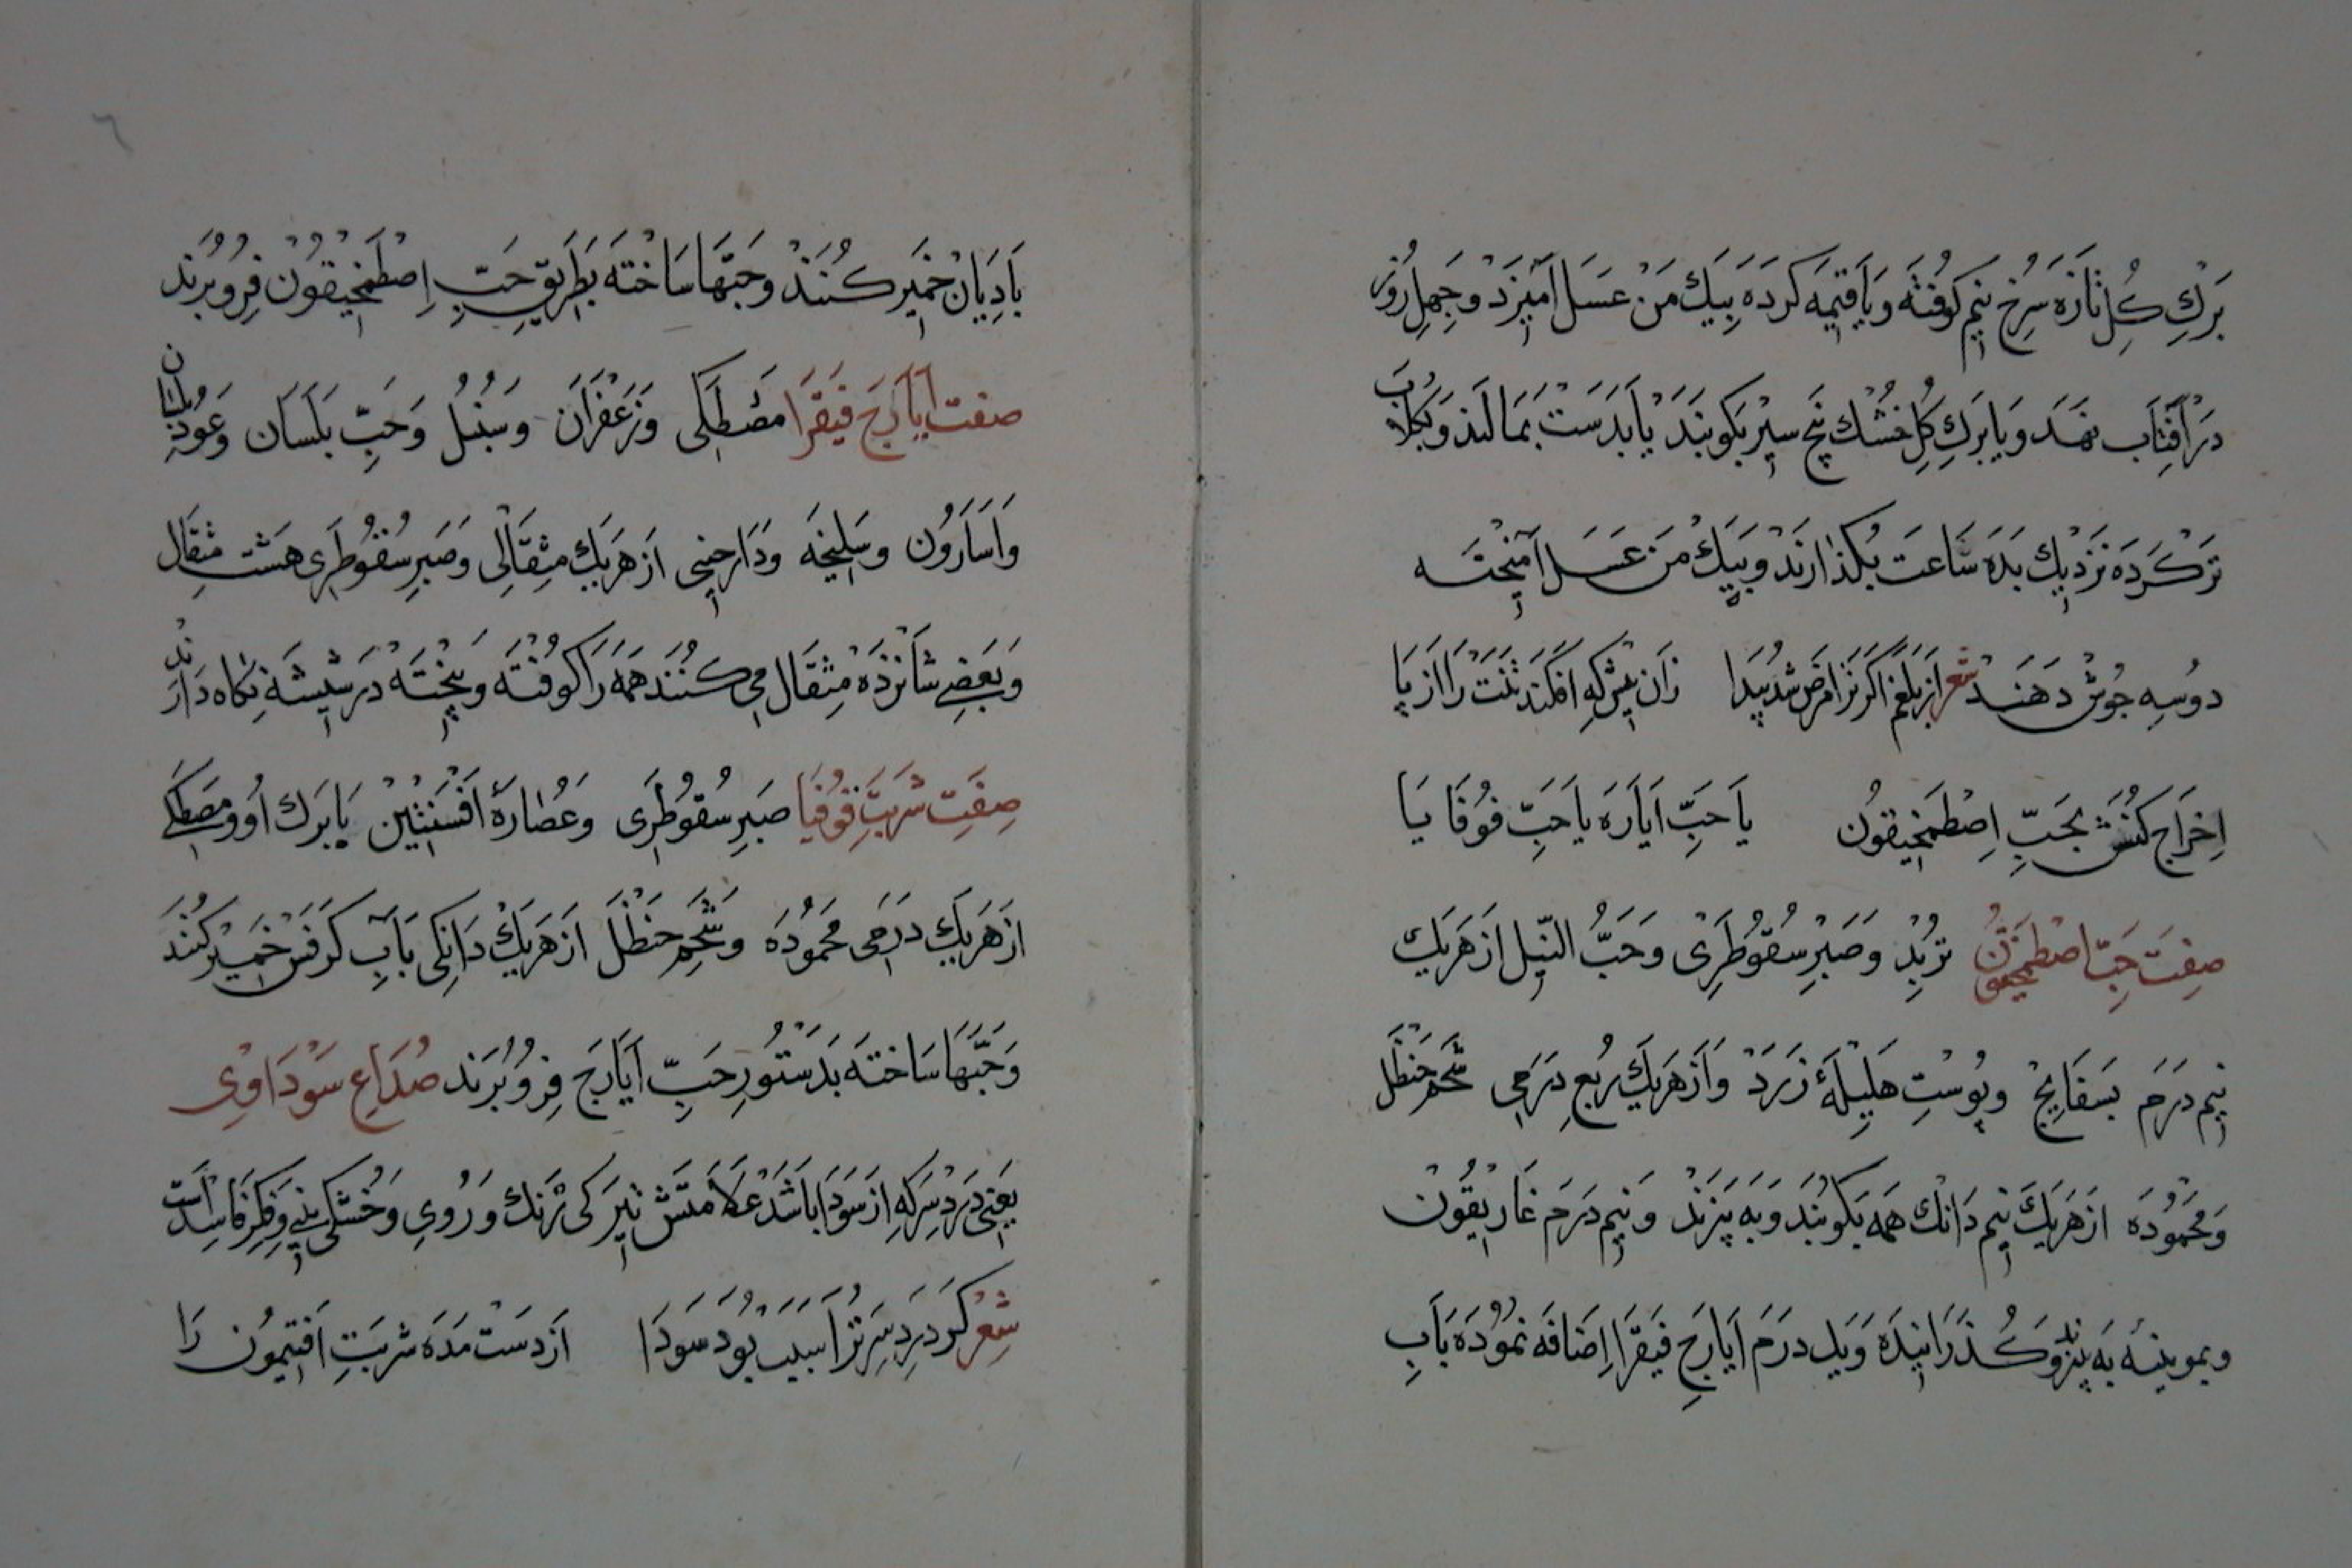 بَرْكِ كُلِ تَازَه سُرْخ نیم كُوفْتَه وَیَا قیمَه كَردَه بِیَك مَنْ عَسَل آمیزَدْ و چِهِل رُوز
دَرْ آفِتَاب نهَد وَیَا بَركِ كُلِ خُشْك پنج سیر بكوبَنَد یَا بَدَسَتْ بَمَالَند وَبكُلاَب
تَر كَردَه نَزدیك بَدَه سَاعَت بُكذارَند و بِیَكْ مَن عَسَل آمیخْتَه
دوُسِه جوُش دَهَند شعر اَز بَلغَم اكَر تَرا مَرَض شُد پَیدَا زَان پیش كِه افكَنَد تَنَت رَا از پَا
اِخرَاج كُنَش بحَبِّ اِصْطَمَخیقوُن یاَ حَبِّ اَیَارَه یاَ حَبِّ قوُقَا یَا
صِفَتَ حَبِّ اصْطَمَخیقوُن تُرْبُدْ وَصَبْرِ سُقُوطَرِیْ وَحَبُّ النّیِل اَز هَرَیك
نیم دَرَم بَسفَایَجْ وپُوسْتِ هَلیلَهٔ زَرَدْ وَاَز هَریَك رُبعِ دِرَمی شَحْمِ حَنْظَل
وَمَحْمُودَه ازهَرَیَكَ نیم دَانك هَمَه بَكوبَنَد وَبَه پَیزَنَدْ وَ نیم دَرَم غَاریْقُونْ
وبموینَه بَه پیزَند وَكُذَرَانیدَه وَیك دِرَم اَیَارَجِ فیَقَرَا اِضَافَه نموُدَه بَآبِ
بَادِیَانْ خمَیر كُنَند وحَبّهَا سَاخْتَه بَطَریقِ حَبِّ اِصْطَمخَیقوُن فِرُوبُرَند
صفت اَیَارَجَ فَیقَرَا مَصْطَكی وَزَعْفَرَان وسُنْبُل وَحَبِّ بَلَسَان وعُودبلسان
وَاَسَارَوُن وسَلیخَه وَدَارچینی اَزهَریَك مِثقَالِی وَصَبرِ سُقُوطَری هَشت مثِقَال
وَبَعْضِی شَانْزدَه مِثقَال می كُنَند هَمَه رَا كُوفْتَه وَبیخْتَه دَرشیشَه نِكَاه دَارَنْد
صِفَتِ شَربَتَ قوُقیَا صَبرِ سُقوُطَری وَعُصَارَهٔ اَفْسَنتین یَا بَرك اوُ ومَصْطَكی
ازهَریَك دِرَمی مَحْمُودَه وشَحْمِ حَنظَل اَزهَریَكْ دَانكِی بَآبِ كرَفس خَمیر كُنَند
وَحَبّهَا سَاخْتَه بَدَستُورِ حَبِّ اَیَارَجَ فِرُوبُرَند صُدَاعِ سَوْدَاوِی
یعَنی دَردِ سَر كه اَز سَوَدَا بَاشَدْ عَلاَمَتَش تیرَ كی رَنك وَرُوی وَخُشكی بینی وَفِكرِ فَاسِد اَست
شِعْر كَر دردِ سَرِ تُرا سَبَبْ بُود سَودَا اَزدَست مَدَه شَربَتِ اَفتیمُون رَا